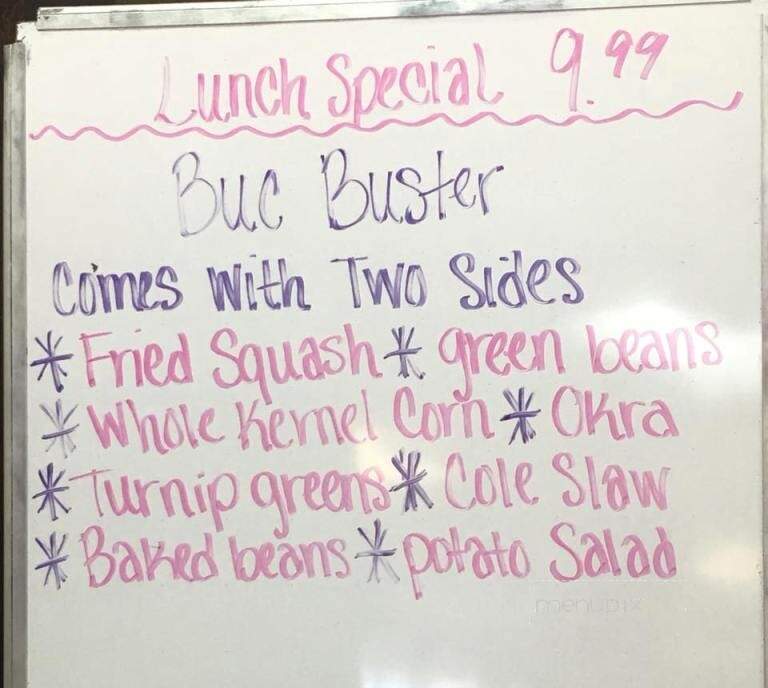 Lunch Special 9.99
Buc Buster
Comes With Two Sides
* Fried Squash * green beans
* Whole Kernel Corn * Okra
* Turnip greens * Cole Slaw
* Baked beans * potato Salad
menupix